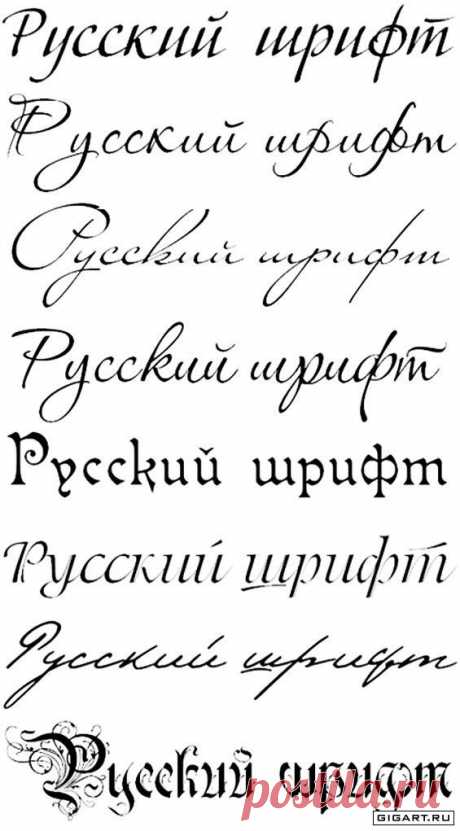 Русский шрифт
Русский шрифт
Русский шрифт
Русский шрифт
Русский шрифт
Русский шрифт
Русский шрифт
Русский шрифт
postila.ru
GIGART.RU